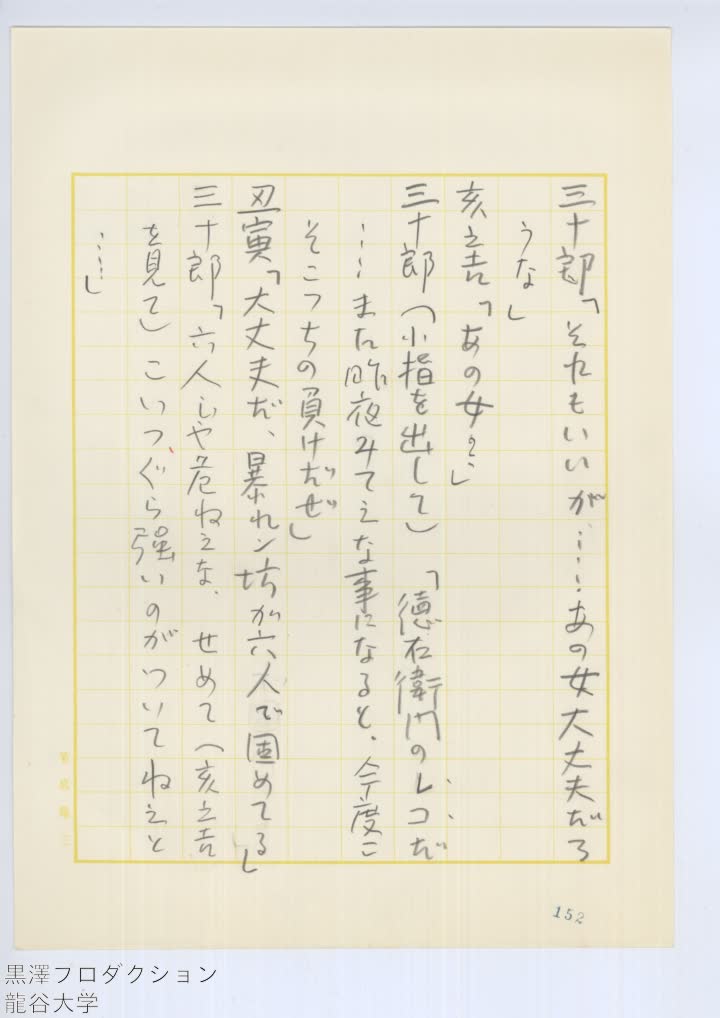 三十郎「それもいいが……あの女大丈夫だろ
うな」
亥之吉「あの女?」
三十郎（小指を出して）「徳右衛門のレコだ
……また昨夜みてえな事になると、今度こ
そこっちの負けだぜ」
丑寅「大丈夫だ、暴れン坊が六人で固めてる」
三十郎「六人じゃ危ねえな、せめて（亥之吉
を見て）こいつぐら強いのがついてねえと
……」
152
黒澤プロダクション
龍谷大学